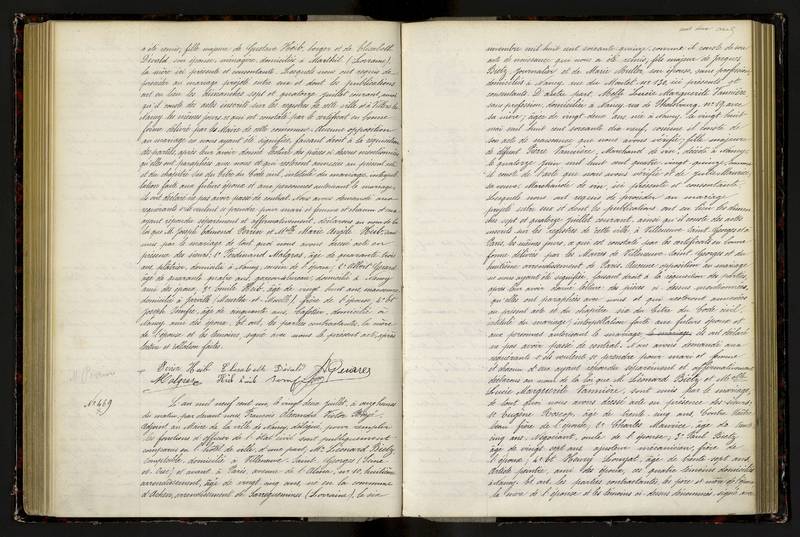 a été remis, fille majeure de Gustave Hieb, berger et de Elisabeth
son épouse, ménagère, domiciliés à (Lorraine),
la mère ici présente et consentante. Lesquels nous ont requis de
procéder au mariage projeté entre eux et dont les publications
ont eu lieu les dimanches sept et quatorze juillet courant, ainsi
qu'il conste des actes inscrits sur les registres de cette ville et à
Nancy les mêmes jours, ce qui est constaté par le certificat en bonne
forme délivré par le Maire de cette commune. Aucune opposition
au mariage ne nous ayant été signifiée, faisant droit à la réquisition
des parties, après leur avoir donné lecture des pièces ci-dessus mentionnées
qu'elles ont paraphées avec nous et qui resteront annexées au présent acte,
et du chapitre six du titre du Code civil, intitulé du mariage, interpel-
lation faite aux futurs époux et aux personnes autorisant le mariage,
ils ont déclaré ne pas avoir passé de contrat. Nous avons demandé aux
requérants s'ils veulent se prendre pour mari et femme et chacun d'eux
ayant répondu séparément et affirmativement, déclarons au nom de la
loi que M. Joseph Edmond Perrin et Melle Marie Hieb, sont
unis par le mariage de tout quoi nous avons dressé acte en
présence des sieurs: 1° Ferdinand Malgras, âgé de quarante trois
ans, plâtrier, domicilié à Nancy, 2° Albert
âgé de quarante quatre ans, domicilié à Nancy,
ami des époux, 3° Emile Hieb, âgé de vingt huit ans, manœuvre,
domicilié à Jarville (Meurthe et Moselle), frère de l'épouse, 4° et
Joseph âgé de cinquante ans, cafetier, domicilié à
Nancy, ami des époux. Et ont, les parties contractantes, la mère
de l'épouse et les témoins, signé avec nous le présent acte, après
lecture et collation faites.
Perrin Hieb Elisabeth
Malgras Hieb Emile
N° 469
L'an mil neuf cent un, le vingt deux juillet, à onze heures
du matin, par devant nous François Alexandre Victor
adjoint au Maire de la ville de Nancy, délégué pour remplir
les fonctions d'officier de l'état civil sont publiquement
comparus en l'hôtel de ville, d'une part, Mr Léonard Bietz,
comptable, domicilié à Villeneuve-Saint-Georges (Seine
et Oise) et avant à Paris, avenue de l'Alma, n° 10, huitième
arrondissement, âgé de vingt cinq ans, né en la commune
d'Achen, arrondissement de Sarreguemines (Lorraine), le six
novembre mil huit cent soixante quinze, comme il conste de son
acte de naissance qui nous a été remis, fils majeur de Jacques
Bietz, journalier et de Marie Muller son épouse, sans profession,
domiciliés à Nancy, rue du Montet, n° 130, ici présents et
consentants. D'autre part, Melle Lucie Marguerite Vannière,
sans profession, domiciliée à Nancy, rue de Strasbourg, n° 19, avec
sa mère, âgée de vingt deux ans, née à Nancy, le vingt huit
mai mil huit cent soixante dix neuf, comme il conste de
son acte de naissance que nous avons vérifié, fille majeure
de défunt Pierre Vannière, Marchand de vin, décédé à Nancy,
le quatorze juin mil huit cent quatre vingt quinze, comme
il conste de l'acte que nous avons vérifié et de Julie Maurice,
sa veuve, Marchande de vin, ici présente et consentante.
Lesquels nous ont requis de procéder au mariage
projeté entre eux et dont les publications ont eu lieu les diman-
ches sept et quatorze juillet courant, ainsi qu'il conste des actes
inscrits sur les registres de cette ville, à Villeneuve-Saint-Georges et à
Paris, les mêmes jours, ce qui est constaté par les certificats en bonne
forme délivrés par les Maires de Villeneuve-Saint-Georges et du
huitième arrondissement de Paris. Aucune opposition au mariage
ne nous ayant été signifiée, faisant droit à la réquisition des parties,
après leur avoir donné lecture des pièces ci-dessus mentionnées,
qu'elles ont paraphées avec nous et qui resteront annexées
au présent acte et du chapitre six du titre du Code civil,
intitulé du mariage, interpellation faite aux futurs époux et
aux personnes autorisant le mariage, ils ont déclaré
ne pas avoir passé de contrat. Nous avons demandé aux
requérants s'ils veulent se prendre pour mari et femme
et chacun d'eux ayant répondu séparément et affirmativement
déclarons au nom de la loi que Mr Léonard Bietz et Melle
Lucie Marguerite Vannière, sont unis par le mariage
de tout quoi nous avons dressé acte en présence des sieurs:
1° Eugène âgé de trente cinq ans,
beau frère de l'époux, 2° Charles Maurice, âgé de
cinq ans, Négociant, oncle de l'épouse, 3° Paul Bietz,
âgé de vingt sept ans, ajusteur mécanicien, frère de
l'époux, 4° et Henri âgé de trente sept ans,
Artiste peintre, ami des époux, ces quatre témoins domiciliés
à Nancy. Et ont, les parties contractantes, les père et mère de l'époux,
la mère de l'épouse et les témoins ci-dessus dénommés, signé avec